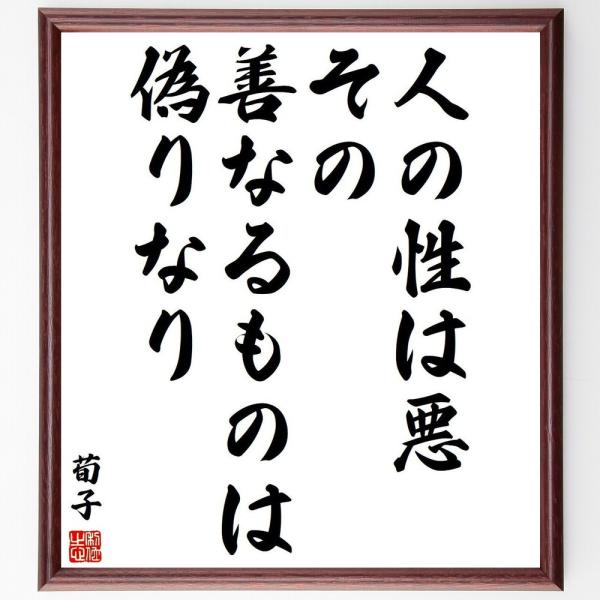 人の性は悪
その
善なるものは
偽りなり
荀子